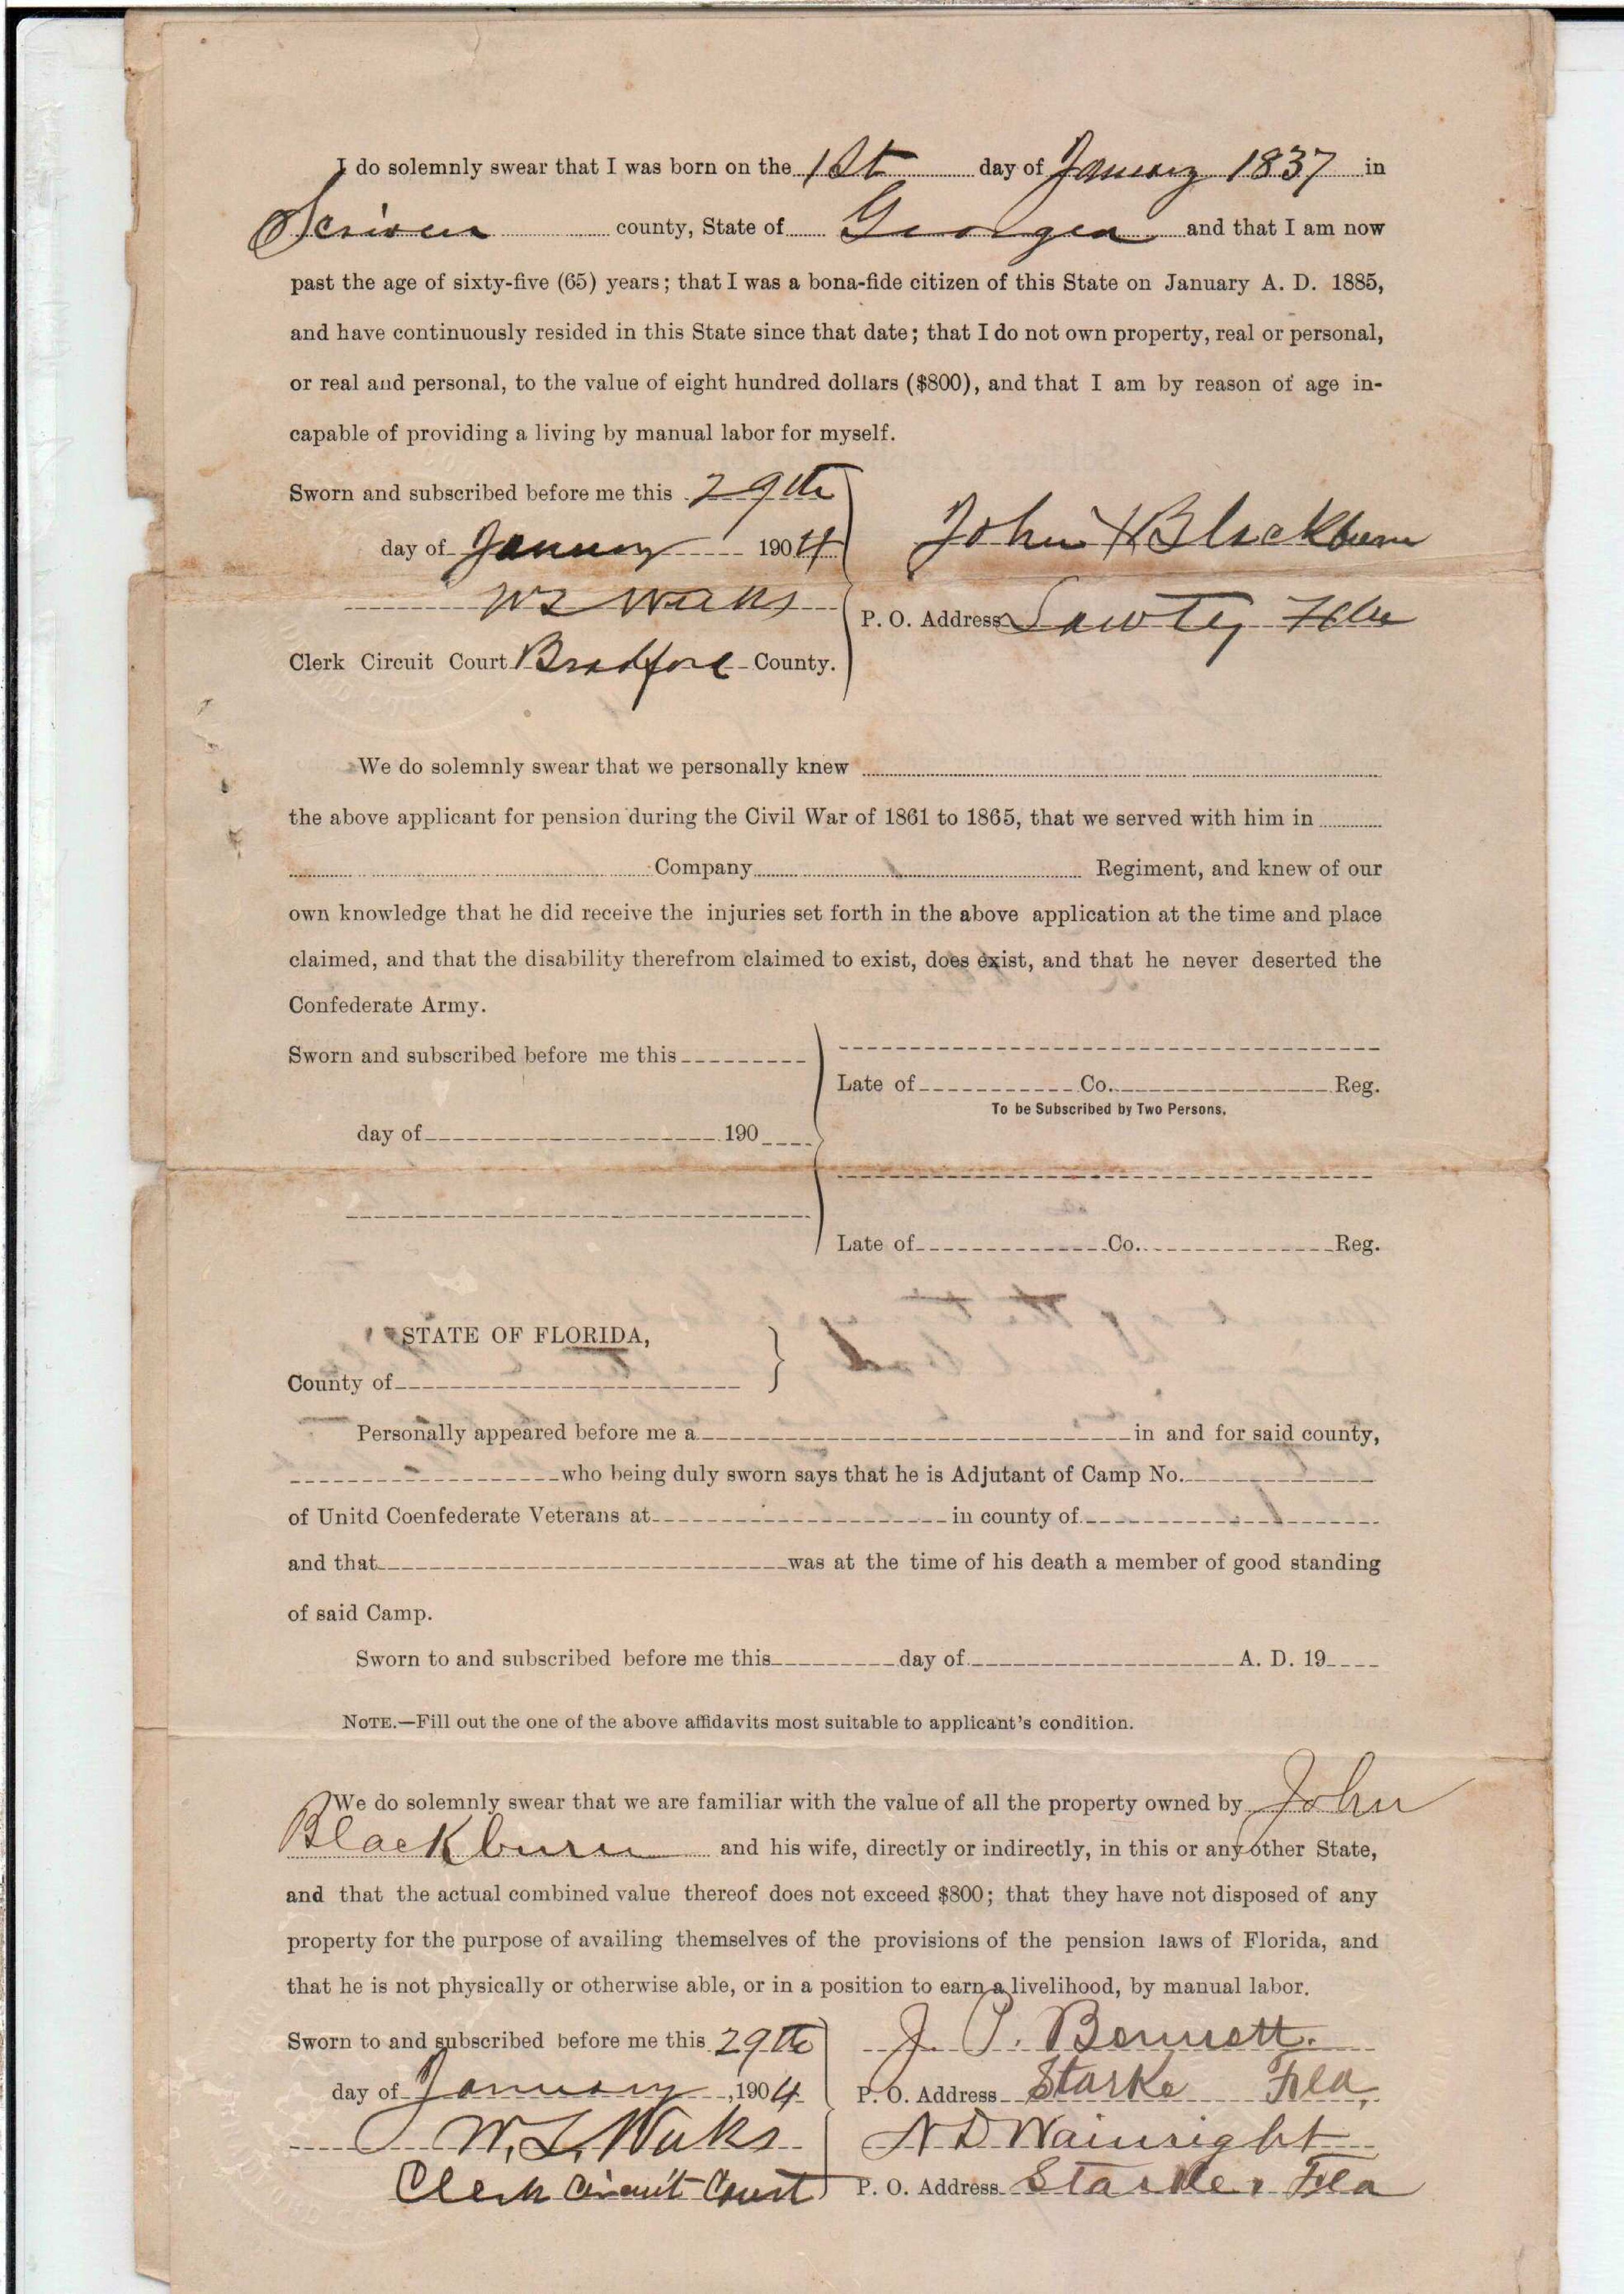 I do solemnly swear that I was born on the 1st day of January 1837 in
Scriven county, State of Georgea and that I am now
past the age of sixty-five (65) years; that I was a bona-fide citizen of this State on January A. D. 1885,
and have continuously resided in this State since that date; that I do not own property, real or personal,
or real and personal, to the value of eight hundred dollars ($800), and that I am by reason of age in-
capable of providing a living by manual labor for myself.
Sworn and subscribed before me this 29th
day of January 1904
John X Blackburn
P. O. Address Lawtey Fla
Clerk Circuit Court Bradford County.
We do solemnly swear that we personally knew
the above applicant for pension during the Civil War of 1861 to 1865, that we served with him in
Company Regiment, and knew of our
own knowledge that he did receive the injuries set forth in the above application at the time and place
claimed, and that the disability therefrom claimed to exist, does exist, and that he never deserted the
Confederate Army.
Sworn and subscribed before me this
Late of Co. Reg.
To be Subscribed by Two Persons.
day of 190
Late of Co. Reg.
STATE OF FLORIDA,
County of
Personally appeared before me a in and for said county,
who being duly sworn says that he is Adjutant of Camp No.
of Unitd Coenfederate Veterans at in county of
and that was at the time of his death a member of good standing
of said Camp.
Sworn to and subscribed before me this day of A. D. 19
NOTE.—Fill out the one of the above affidavits most suitable to applicant's condition.
We do solemnly swear that we are familiar with the value of all the property owned by John
Blackburn and his wife, directly or indirectly, in this or any other State,
and that the actual combined value thereof does not exceed $800; that they have not disposed of any
property for the purpose of availing themselves of the provisions of the pension laws of Florida, and
that he is not physically or otherwise able, or in a position to earn a livelihood, by manual labor.
Sworn to and subscribed before me this 29th
J. P. Bennett.
day of January, 1904
P. O. Address Starke Fla,
W. L.
N D Wainright
Clerk Circuit Court
P. O. Address Starke, Fla